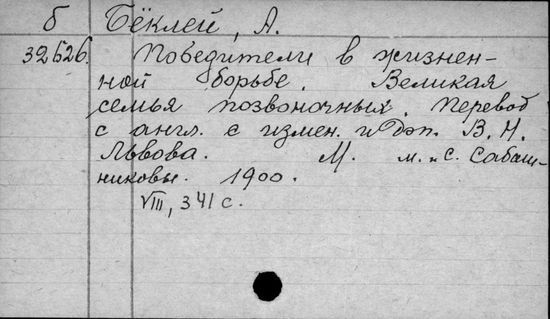 б Бёклей, А.
32526. Победители в жизнен-
ной борьбе. Великая
семья позвоночных. Перевод
с англ. с измен. и доп. В. Н.
Львова. М. М. и С. Сабаш-
никовы. 1900.
VIII, 341 с.